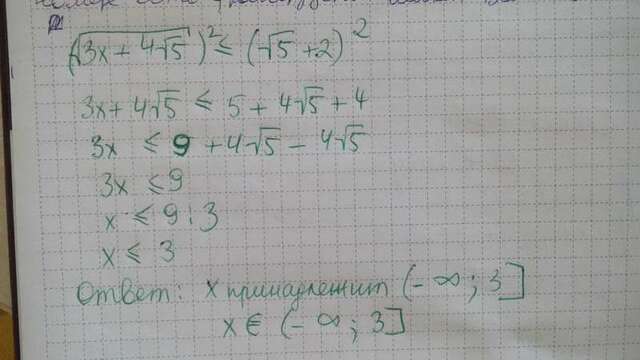 (√3x + 4√5)² ≤ (√5 + 2)²
3x + 4√5 ≤ 5 + 4√5 + 4
3x ≤ 9 + 4√5 - 4√5
3x ≤ 9
x ≤ 9 : 3
x ≤ 3
Ответ: x принадлежит (-∞; 3]
x ∈ (-∞; 3]